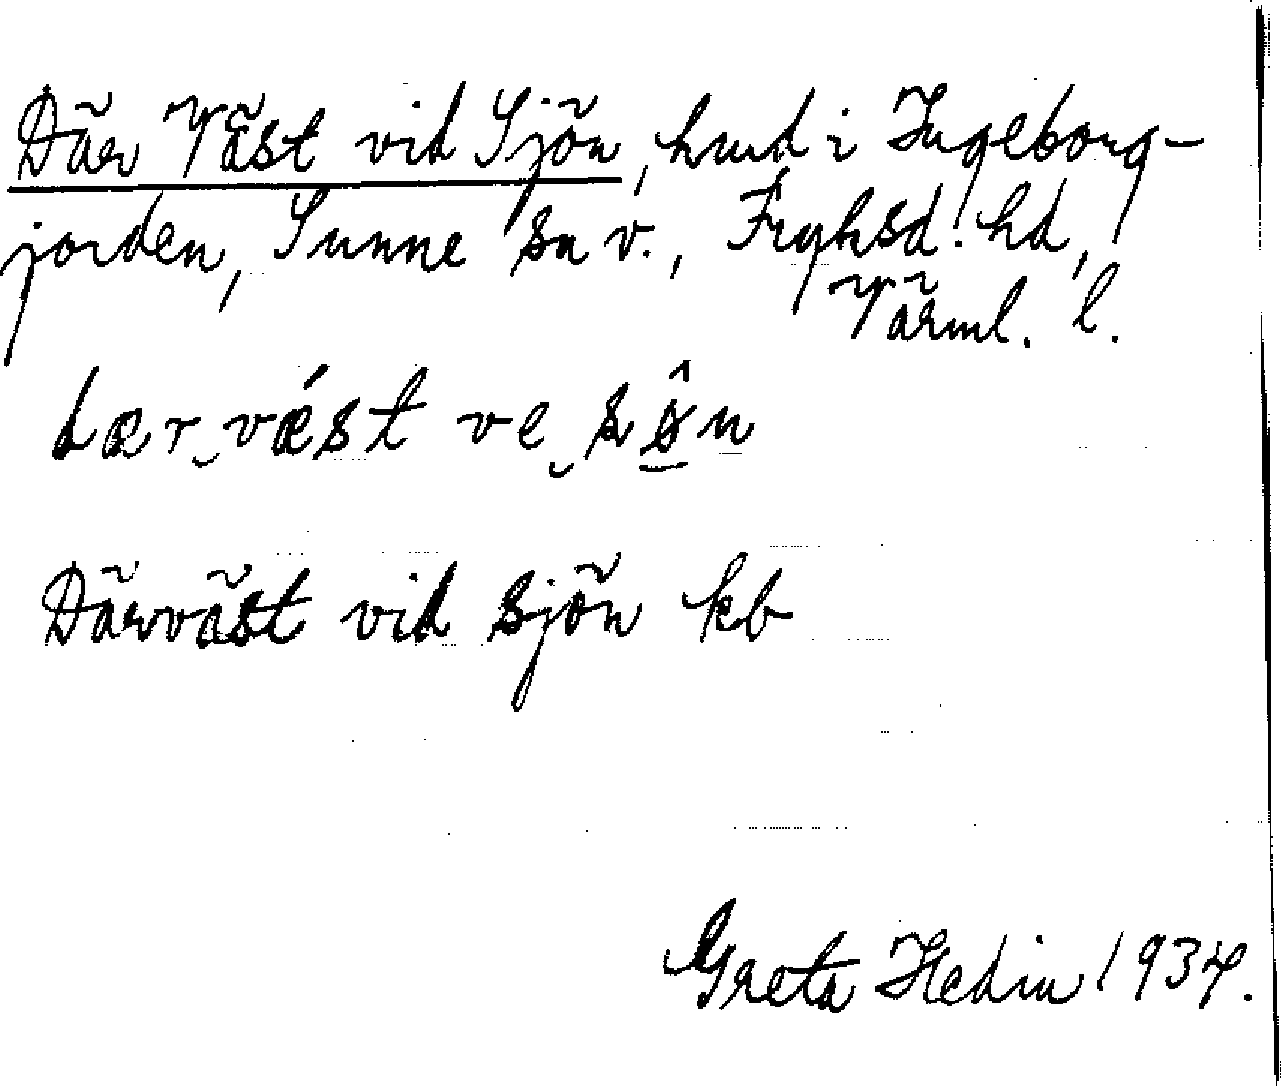 Där Väst vid Sjön, hmd i Ingeborg-
jorden, Sunne sn v., Fryksd. hd,
Värml. l.
dær‿vést ve‿sø̂n
Därväst vid sjön kb
Greta Hedin 1934.